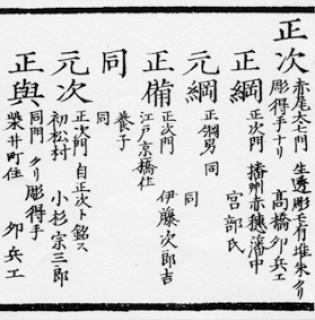 正次
赤尾太七門 生透彫モ有堆朱クリ
彫得手ナリ 高橋卯兵エ
正綱
正次門 播州赤穂藩中
宮部氏
元綱
正綱男 同
同
正備
正次門
江戸京橋住 伊藤次郎吉
同
養子
同
元次
正次門 自正次ト銘ス
初松村 小杉宗三郎
正與
同門 クリ彫得手
柴井町住 卯兵エ